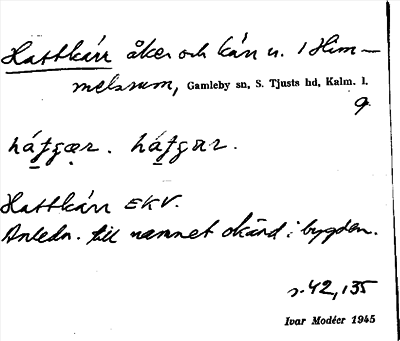 Hattkärr åker och kärr n. i Him-
melsrum, Gamleby sn, S. Tjusts hd, Kalm. l.
9.
Hattkärr EKV.
Anledn. till namnet okänd i bygden.
s. 42, 135
Ivar Modéer 1945